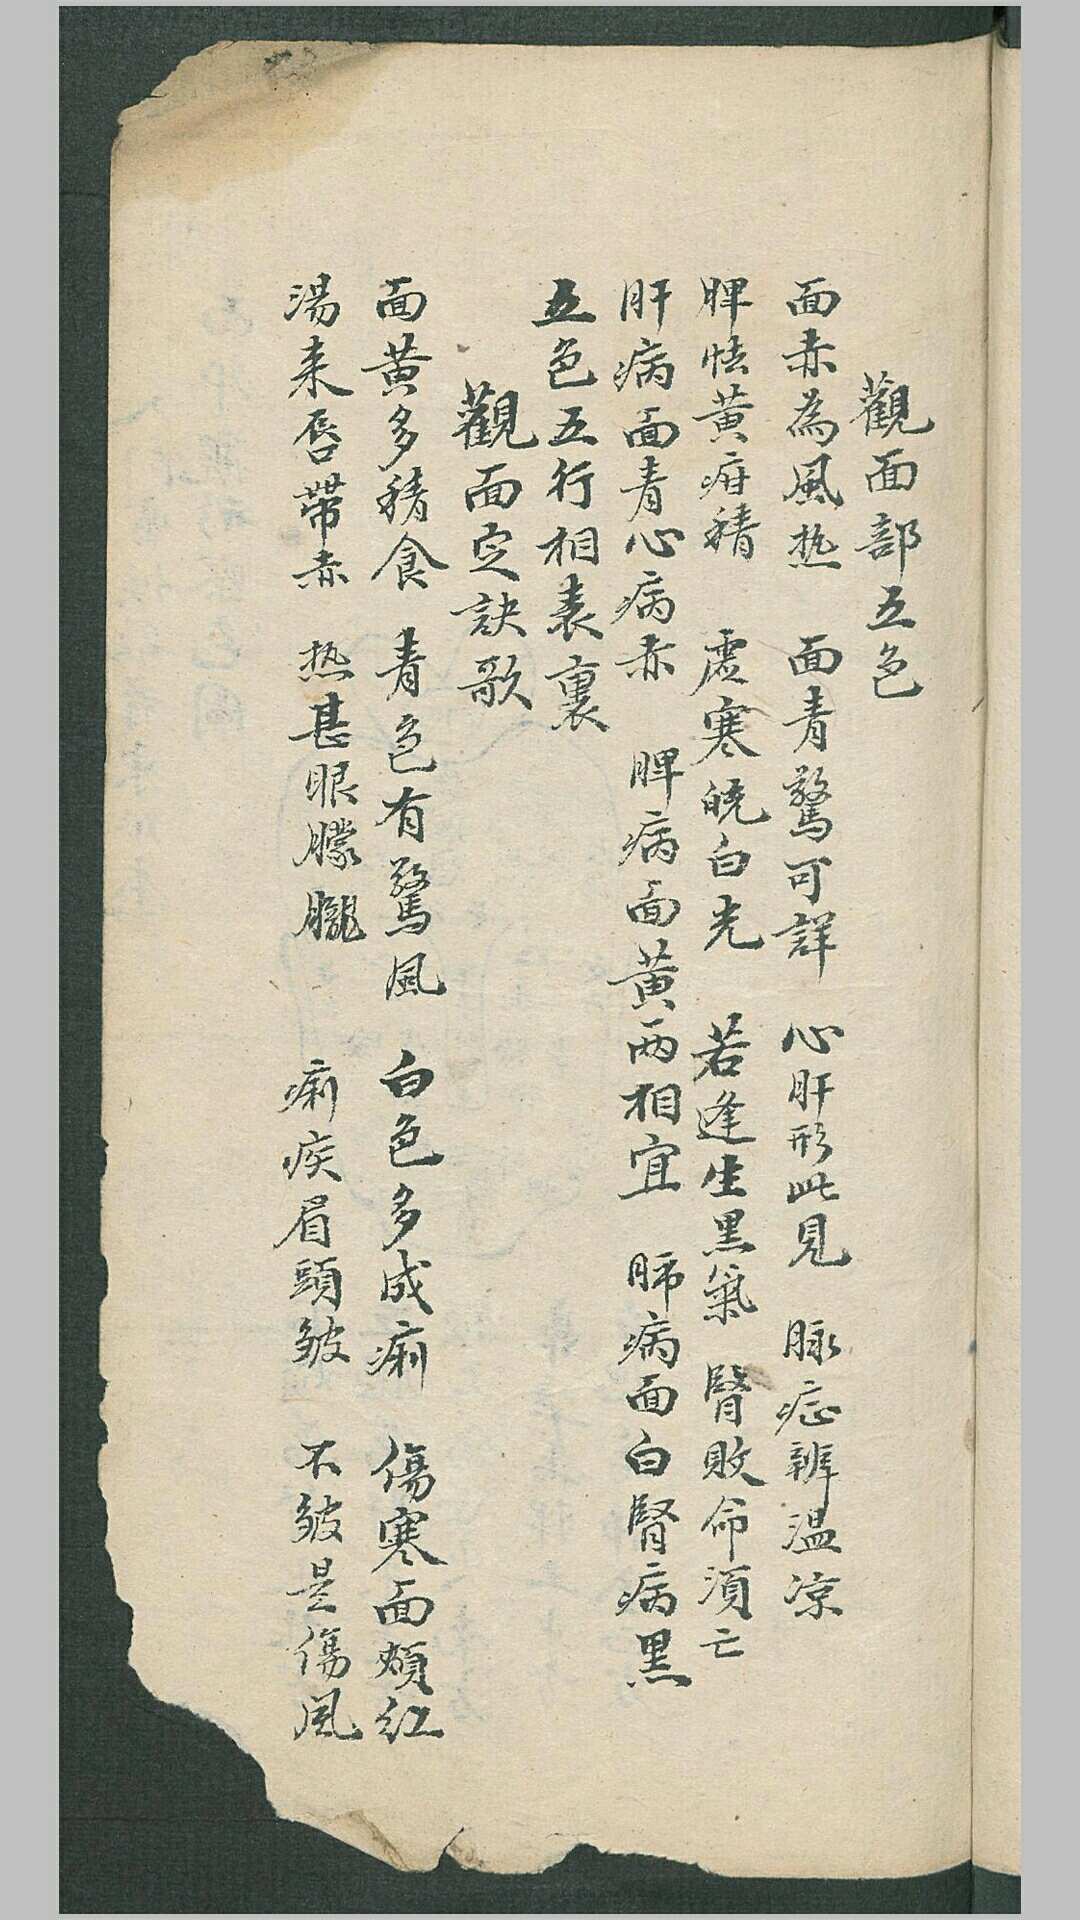 觀面部五色
面赤為風热 面青驚可詳 心肝形此見 脉症辨温凉
脾怯黄疳積 虚寒皖白光 若逢生黑氣 腎敗命須亡
肝病面青心病赤 脾病面黄两相宜 肺病面白腎病黑
五色五行相表裏
觀面定訣歌
面黄多積食 青色有驚風 白色多成痢 傷寒面頰红
湯来唇帶赤 热甚眼朦朧 痢疾眉頭皱 不皱是傷風